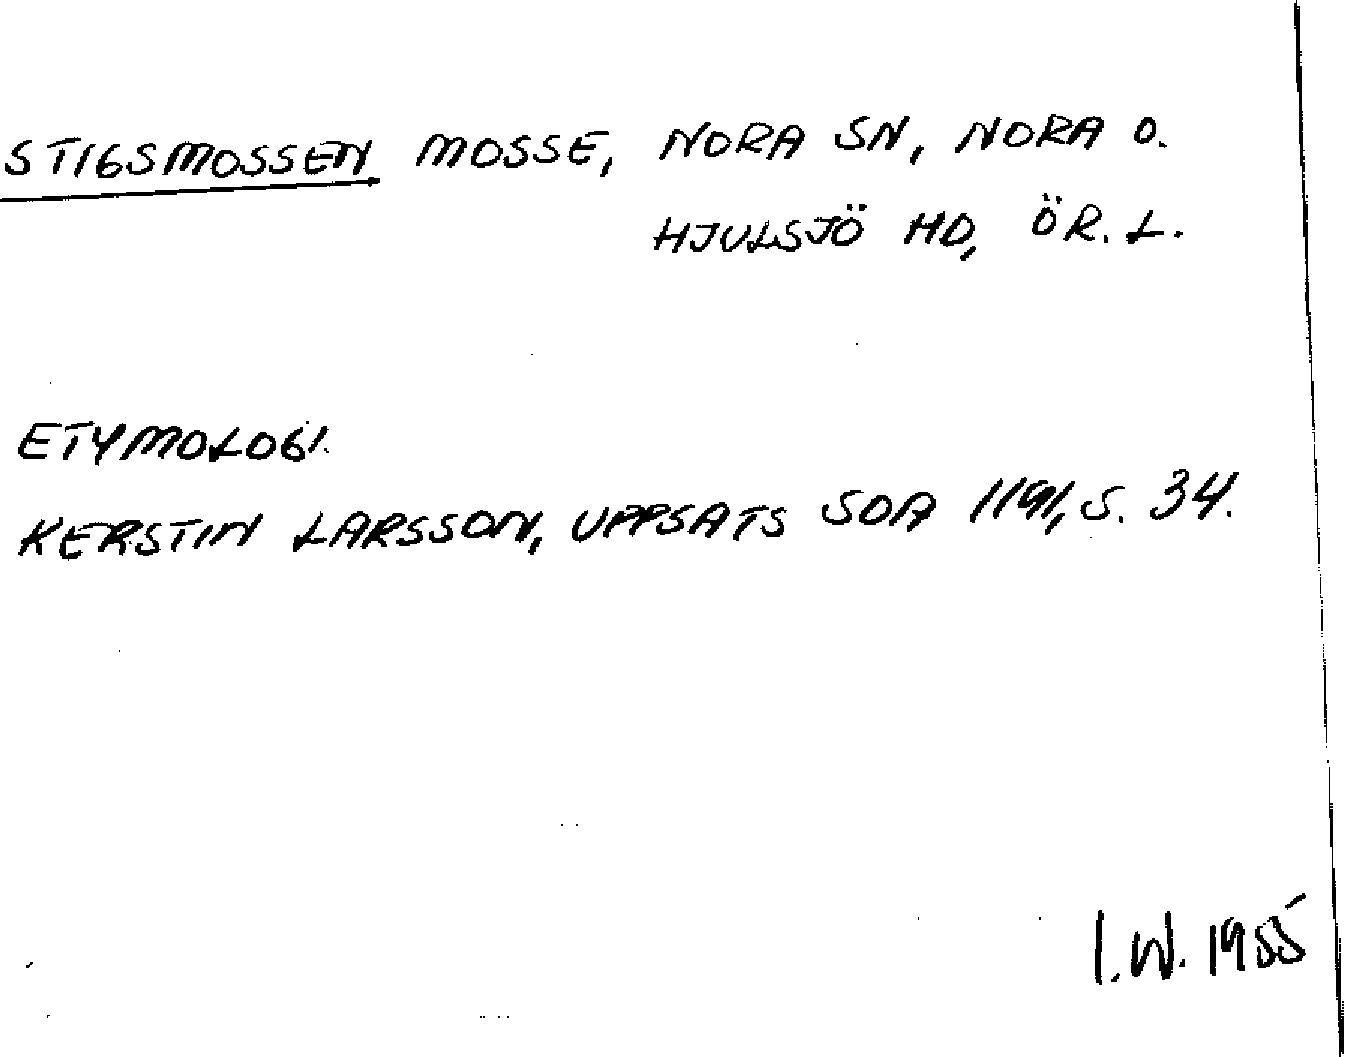 STIGSMOSSEN MOSSE, NORA SN, NORA O.
HJULSJÖ HD, ÖR. L.
ETYMOLOGI.
KERSTIN LARSSON, UPPSATS SOA 1191, S. 34.
I.W. 1955